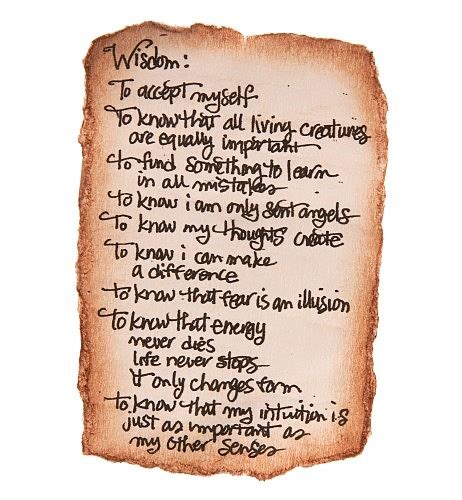 Wisdom:
To accept myself
To know that all living creatures
are equally important
to find something to learn
in all mistakes
to know i am only sent angels
To know my thoughts create
To know i can make
a difference
to know that fear is an illusion
To know that energy
never dies
life never stops
it only changes form
to know that my intuition is
just as important as
my other senses